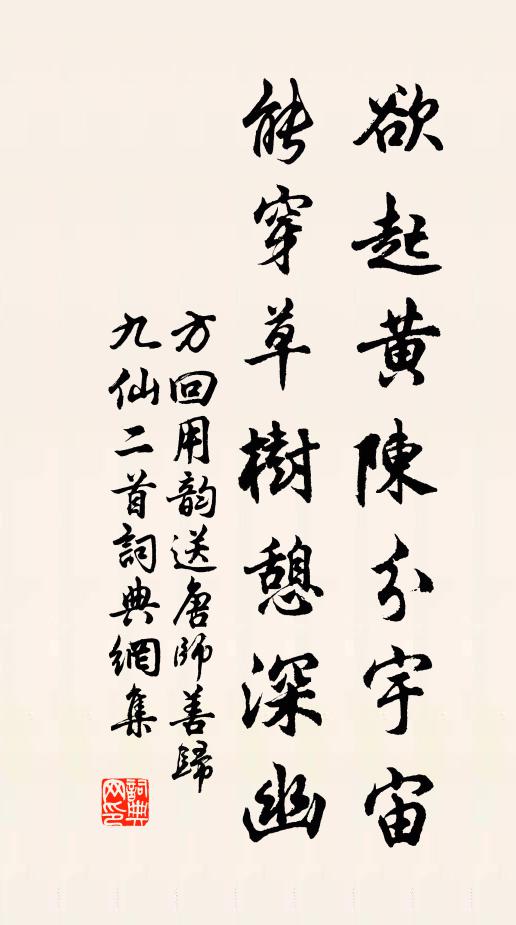 欲起黃陳分宇宙
能穿草樹憩深幽
方回用韵送唐師善歸
九仙二首詞典網集
詞典網印